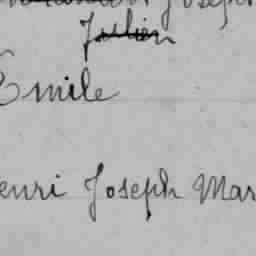 Joseph
Jullien
Emile
enri Joseph Mar